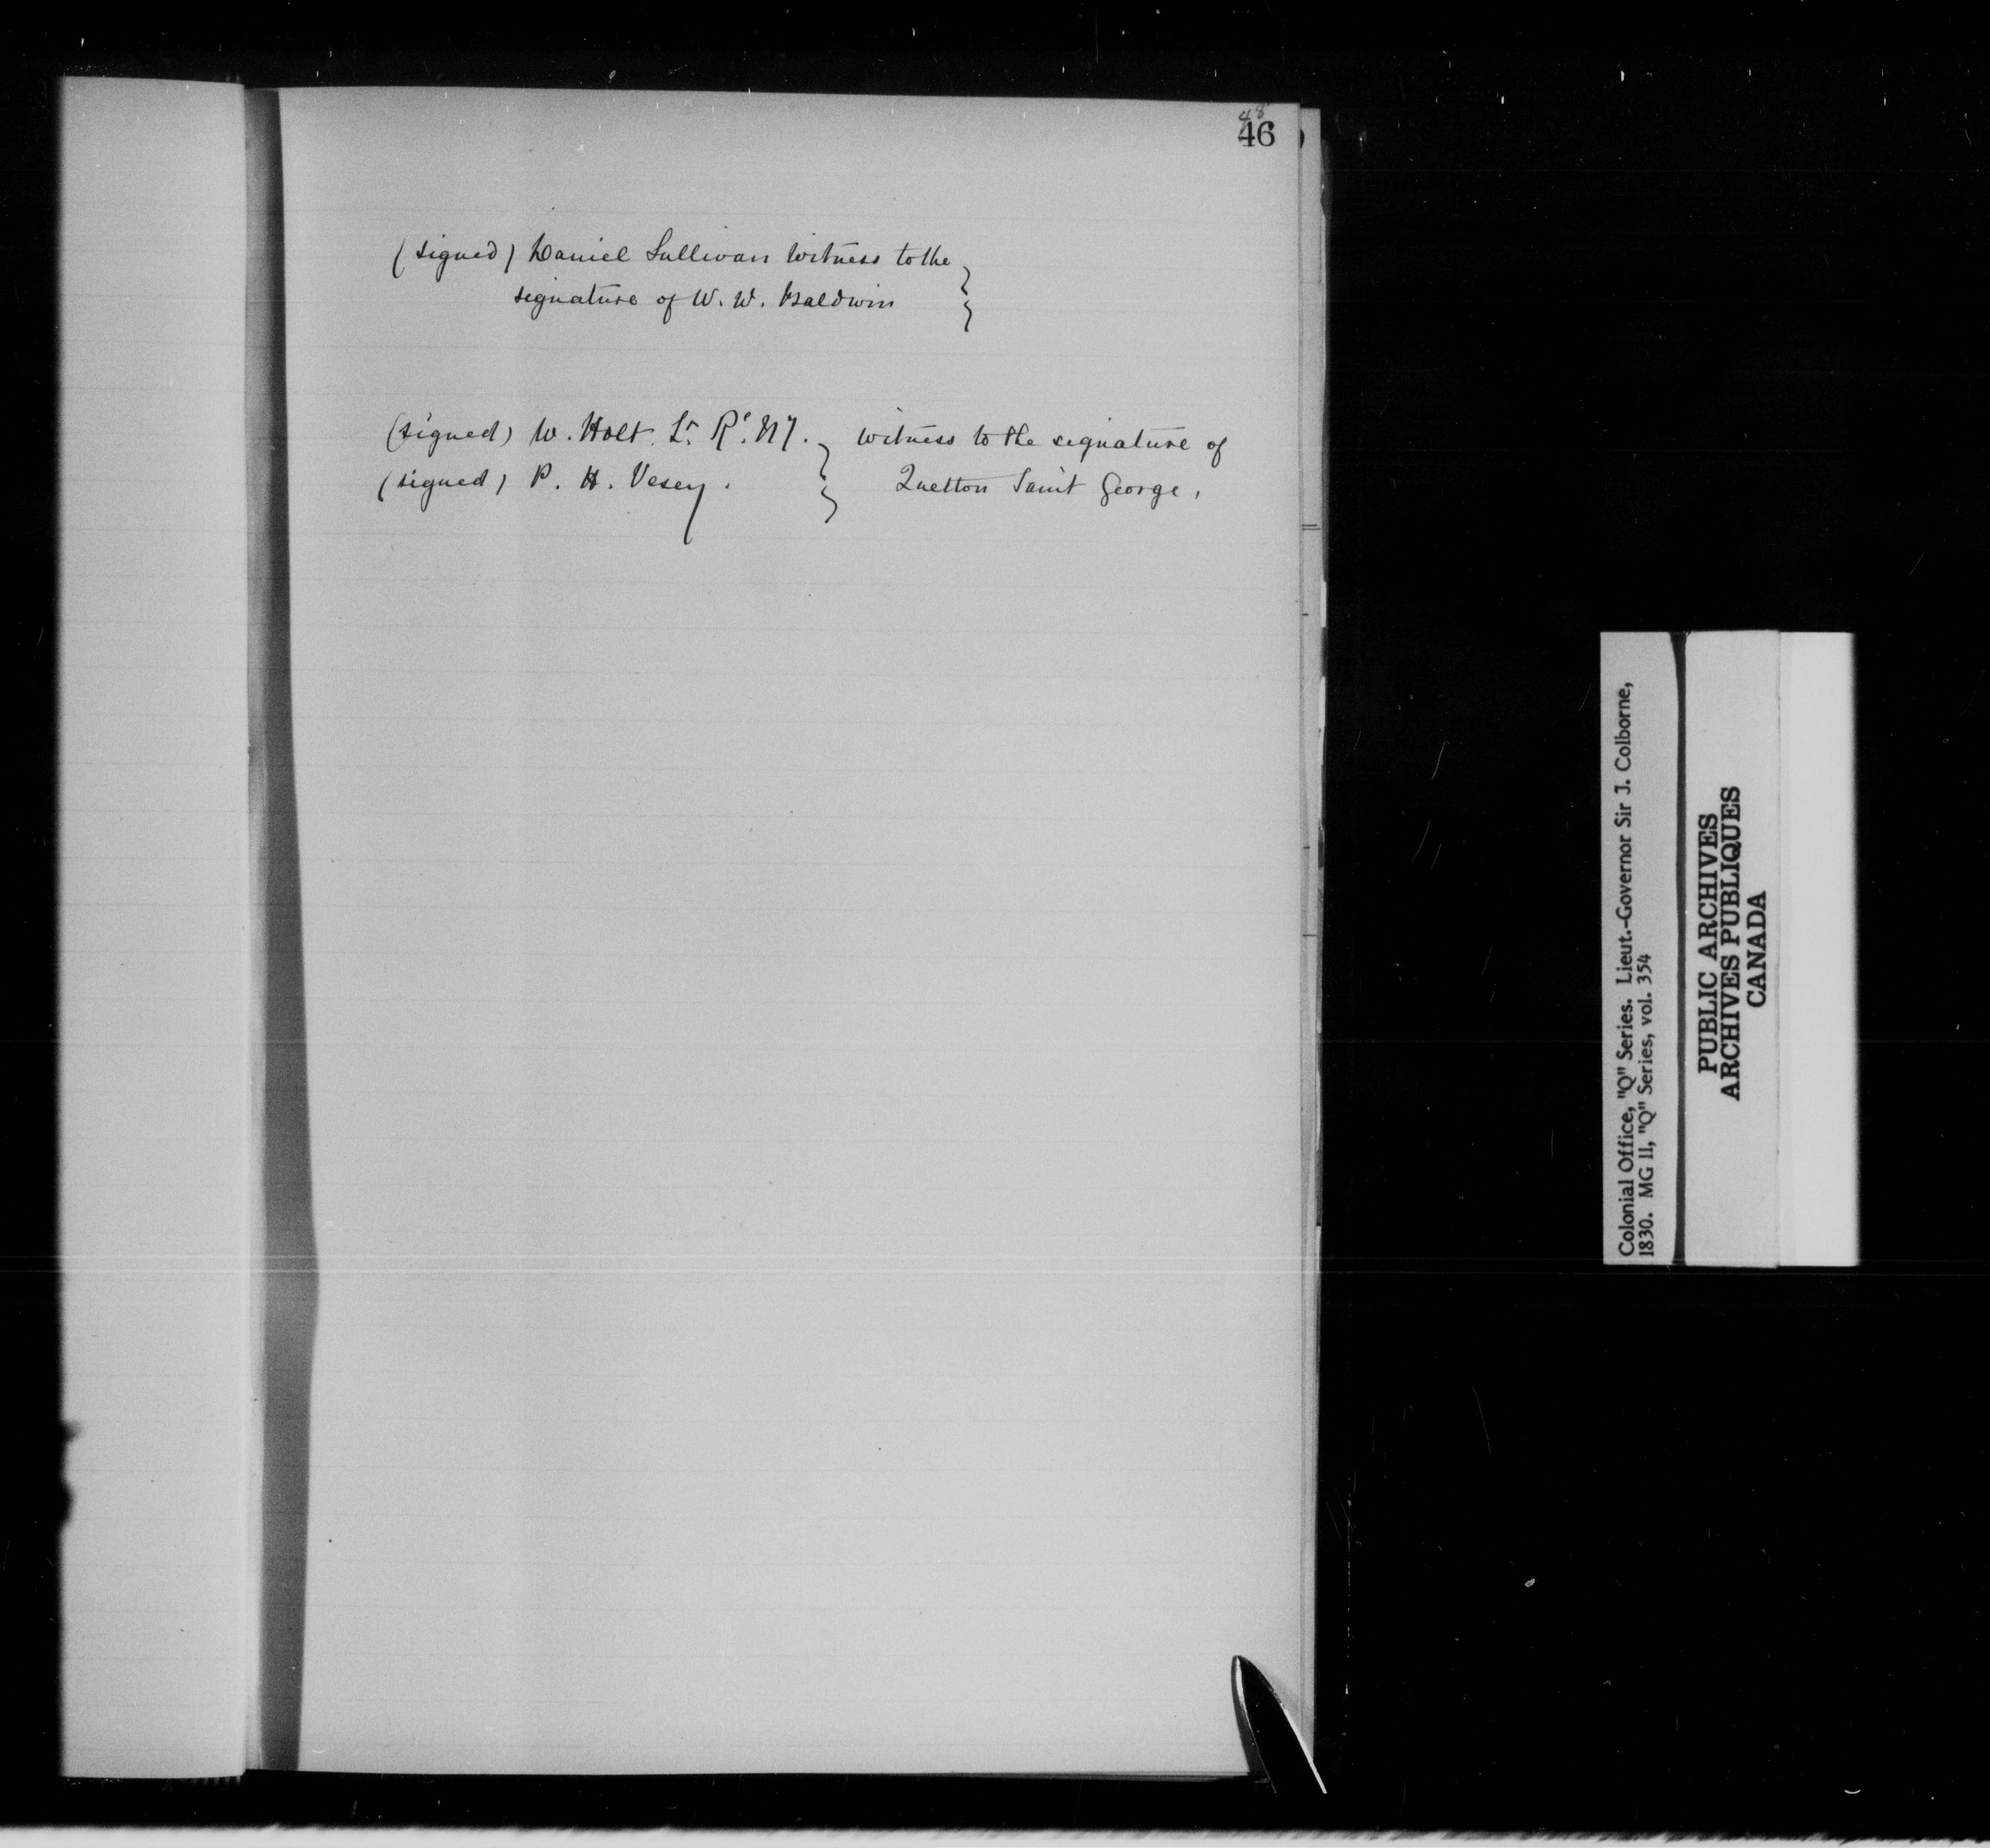 48
46
(signed) Daniel Sullivan witness to the }
signature of W. W. Baldwin
(signed) W. Holt. Lt. R. Ny. } witness to the signature of
(signed) P. H. Vesey. Quetton Saint George,
Colonial Office, "Q" Series. Lieut.-Governor Sir J. Colborne,
1830. MG 11, "Q" Series, vol. 354
PUBLIC ARCHIVES
ARCHIVES PUBLIQUES
CANADA